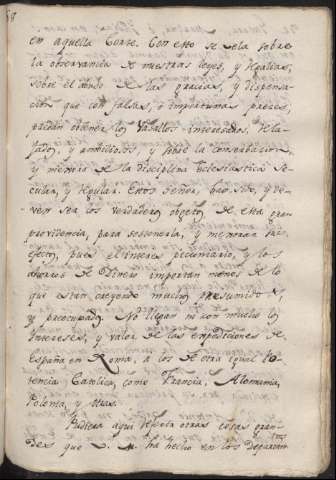 en aquella Corte. Con esto se zela sobre
la observancia de nuestras leyes, y regalias,
sobre el abuso de las gracias, y dispensa-
ciones que con falsas, o importunas preces,
puedan obtener los Vasallos interesados, rela-
jados, y ambiciosos; y sobre la conservacion,
y mejoria de la disciplina Eclesiastica Se-
cular, y Regular. Estos Señor, han sido, y de-
ven ser los verdaderos objetos de esta gran
providencia, para sostenerla, y mejorar sus
efectos, pues el interes pecuniario, y los
ahorros de Dinero importan menos de lo
que estan creyendo muchos presumidos,
y preocupados. No llegan ni con mucho los
Intereses, y valor de las expediciones de
España en Roma, a los de otra igual Po-
tencia Catolica, como Francia, Alemania,
Polonia, y otras.
Pudiera aqui decir otras cosas gran-
des que V. M. ha hecho en los Departamtos